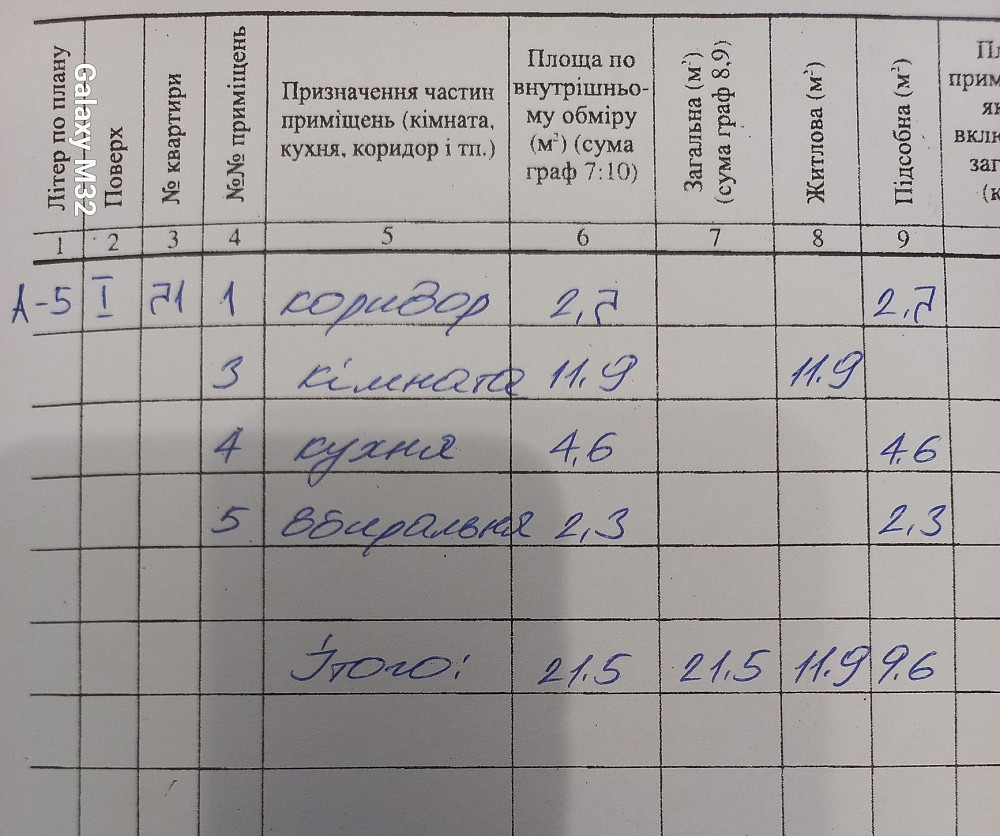 Літер по плану
Поверх
№ квартири
№№ приміщень
Призначення частин
приміщень (кімната,
кухня, коридор і тп.)
Площа по
внутрішньо-
му обміру
(м²) (сума
граф 7:10)
Загальна (м²)
(сума граф 8,9)
Житлова (м²)
Підсобна (м²)
Galaxy M32
1 2 3 4 5 6 7 8 9
А-5 I 71 1 коридор 2,7 2,7
3 кімната 11.9 11.9
4 кухня 4,6 4.6
5 вбиральня 2,3 2,3
Ітого: 21.5 21.5 11.9 9.6